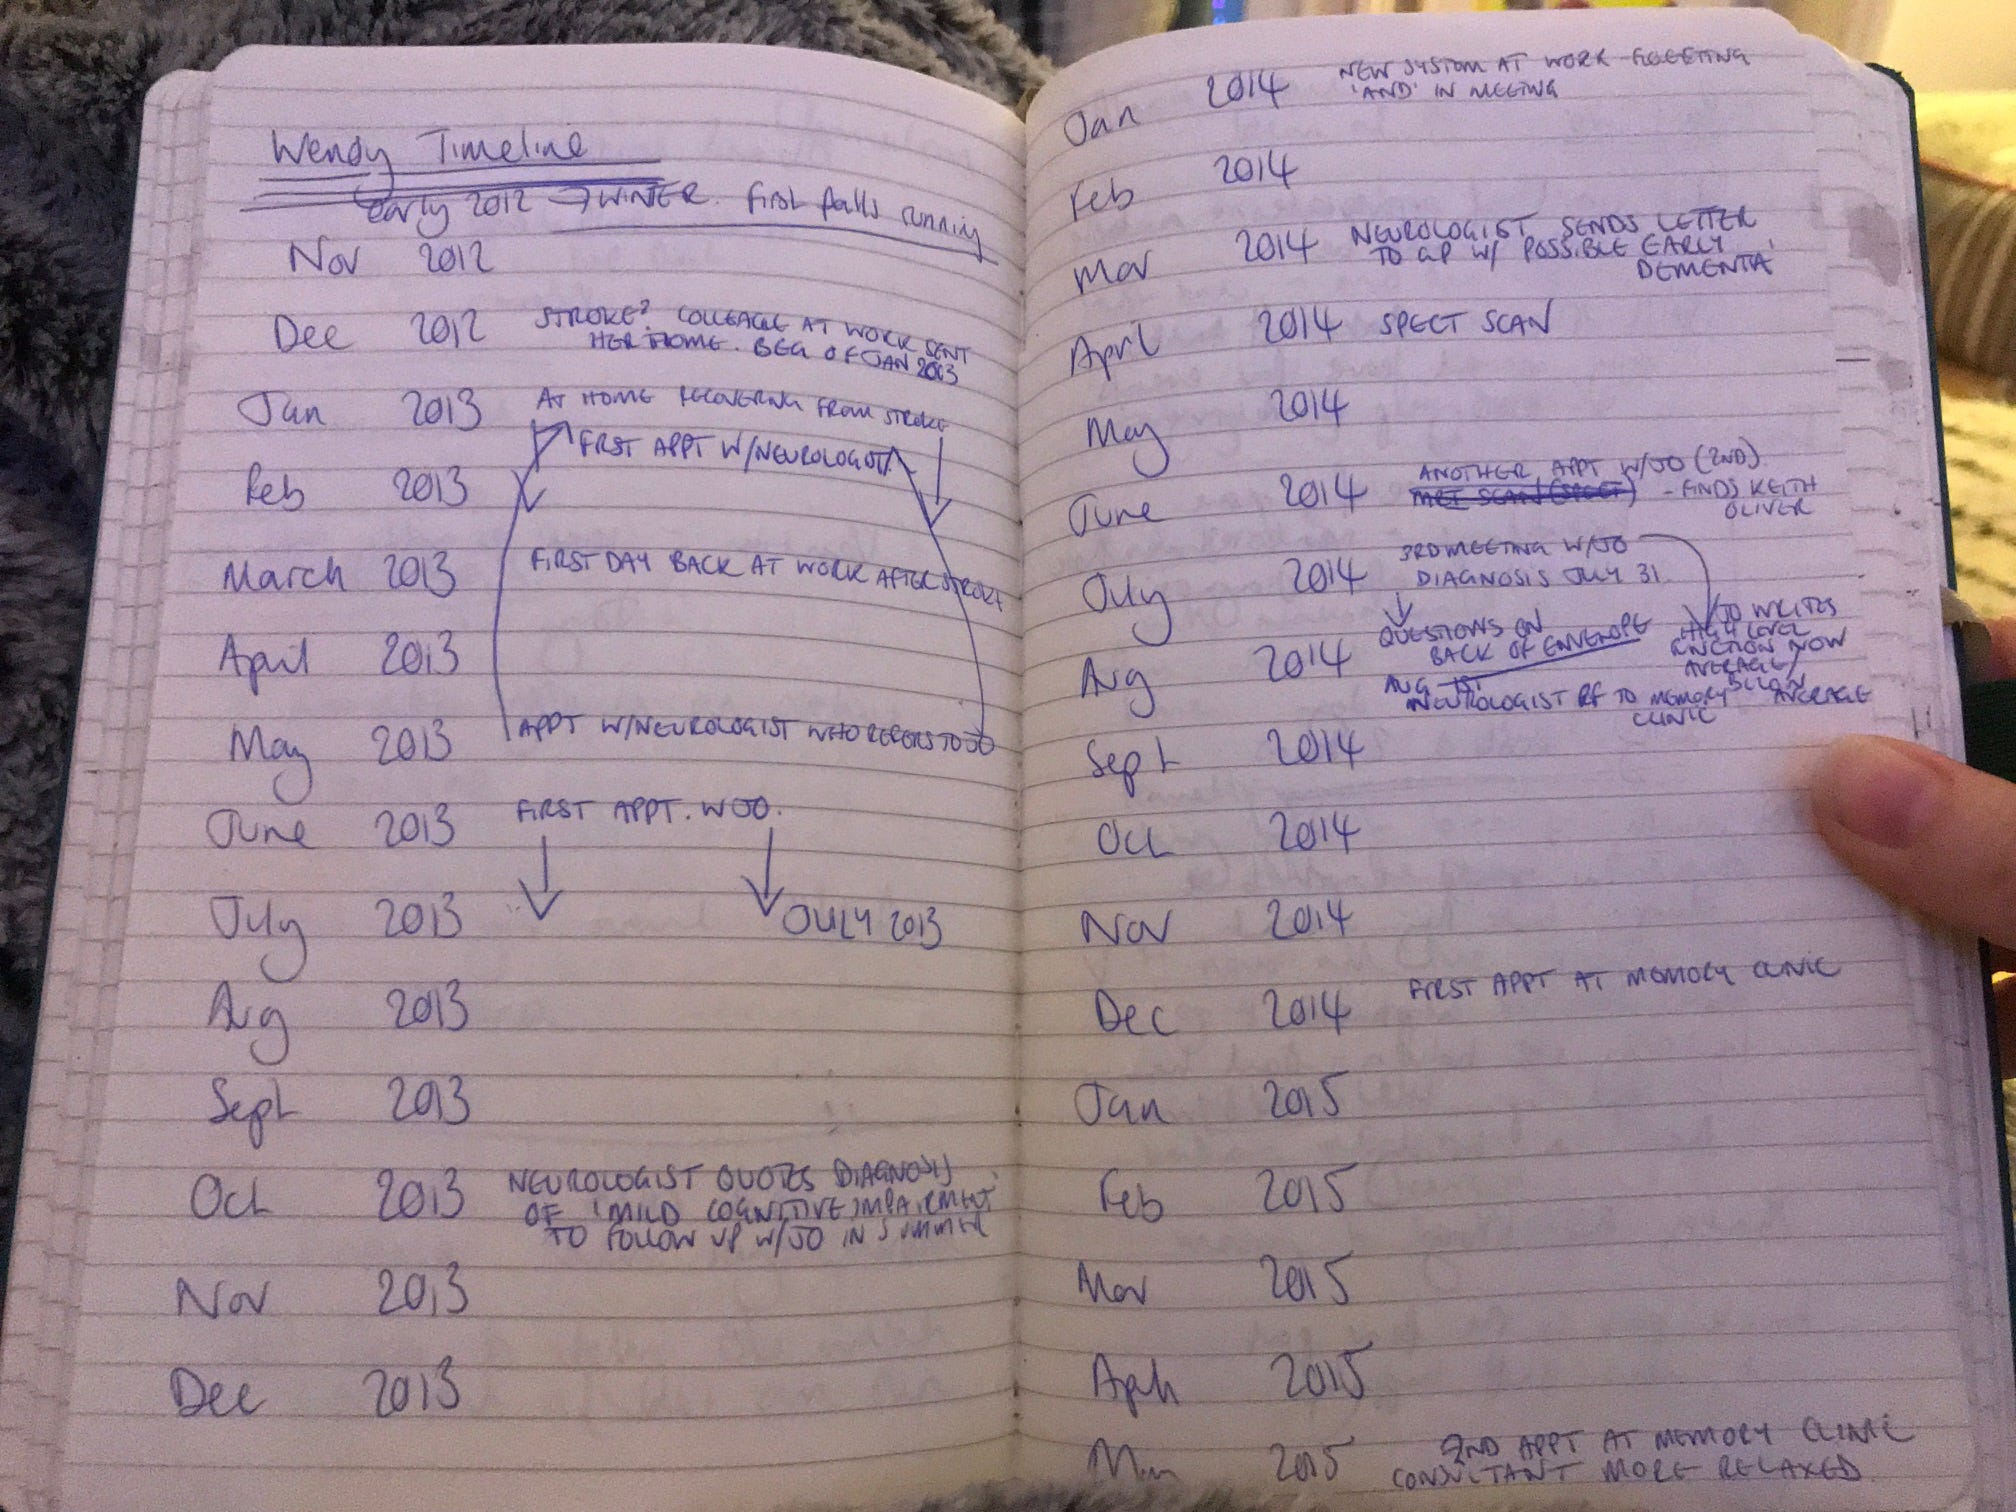 Wendy Timeline
early 2012 → WINTER. First falls running
Nov 2012
Dec 2012 STROKE? COLLEAGUE AT WORK SENT
HER HOME. BEG OF JAN 2013
Jan 2013 AT HOME RECOVERING FROM STROKE
FIRST APPT W/NEUROLOGIST
Feb 2013
March 2013 FIRST DAY BACK AT WORK AFTER STROKE
April 2013
May 2013 APPT W/NEUROLOGIST WHO REFERS TO JO
June 2013 FIRST APPT. W JO.
July 2013 JULY 2013
Aug 2013
Sept 2013
Oct 2013 NEUROLOGIST QUOTES DIAGNOSIS
OF 'MILD COGNITIVE IMPAIRMENT'
TO FOLLOW UP W/JO IN SUMMER
Nov 2013
Dec 2013
Jan 2014 NEW SYSTEM AT WORK - FORGETTING
'AND' IN MEETING
Feb 2014
Mar 2014 NEUROLOGIST SENDS LETTER
TO GP W/ POSSIBLE EARLY
DEMENTIA'
April 2014 SPECT SCAN
May 2014
June 2014 ANOTHER APPT W/JO (2ND)
- FINDS KEITH
OLIVER
July 2014 3RD MEETING W/JO
DIAGNOSIS JULY 31
Aug 2014 QUESTIONS ON
BACK OF ENVELOPE
JO WRITES
HIGH LEVEL
FUNCTION NOW
AVERAGE/
BELOW AVERAGE
AUG 1ST
NEUROLOGIST RF TO MEMORY
CLINIC
Sept 2014
Oct 2014
Nov 2014
Dec 2014 FIRST APPT AT MEMORY CLINIC
Jan 2015
Feb 2015
Mar 2015
Aprh 2015
2015 2ND APPT AT MEMORY CLINIC
CONSULTANT MORE RELAXED